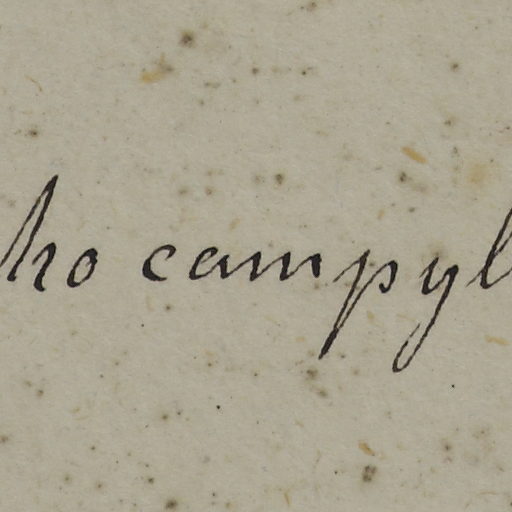 ho campyl